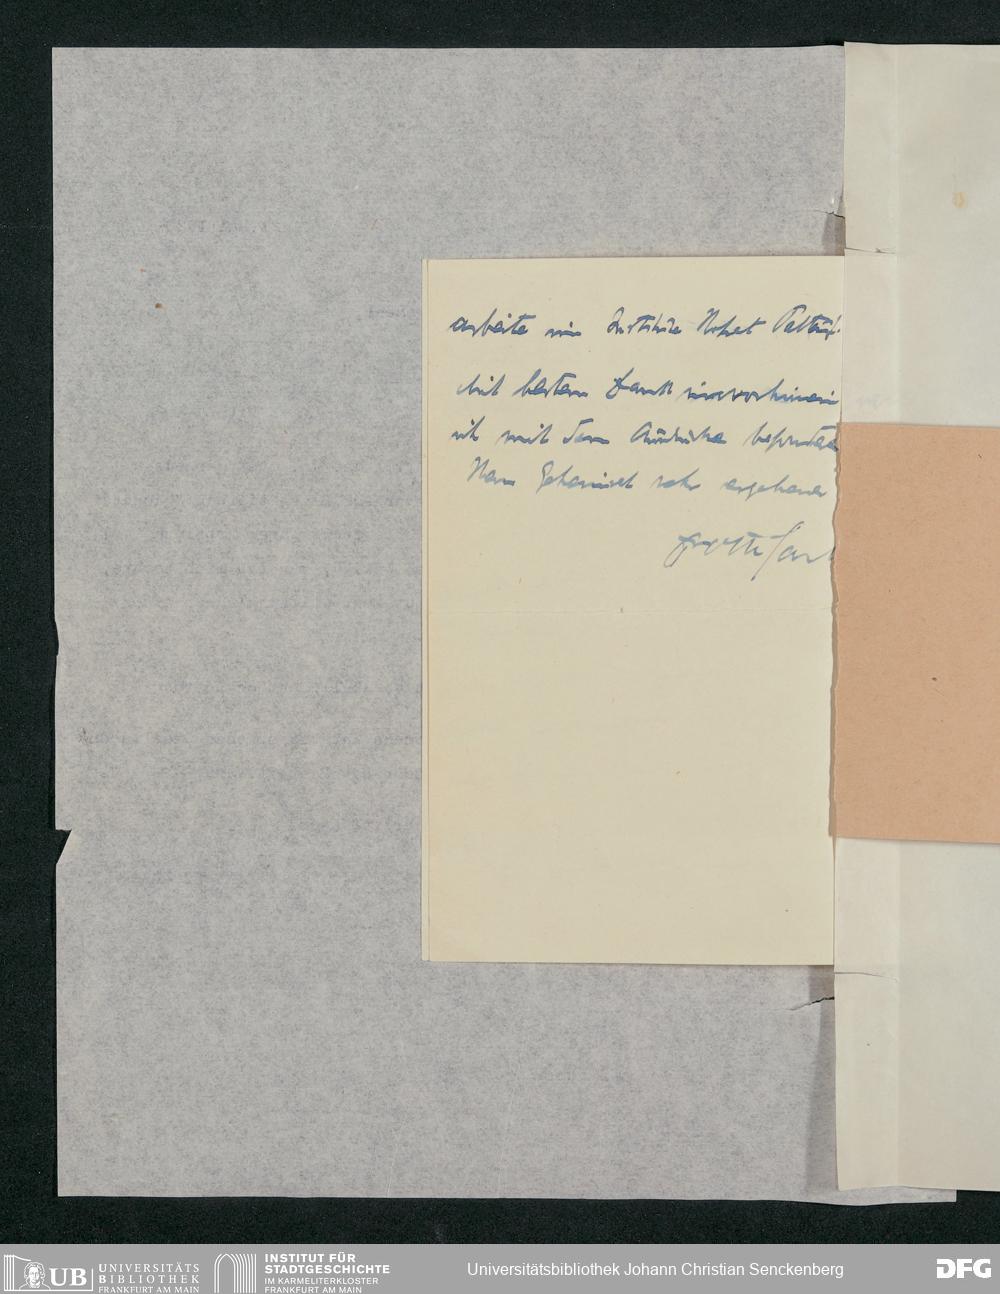 arbeite im Institute
Mit bestem Dank im vorhinein
ich mit dem Ausdrucke
Herrn Geheimrat sehr ergebener
UB UNIVERSITÄTS
BIBLIOTHEK
FRANKFURT AM MAIN
INSTITUT FÜR
STADTGESCHICHTE
IM KARMELITERKLOSTER
FRANKFURT AM MAIN
Universitätsbibliothek Johann Christian Senckenberg
DFG